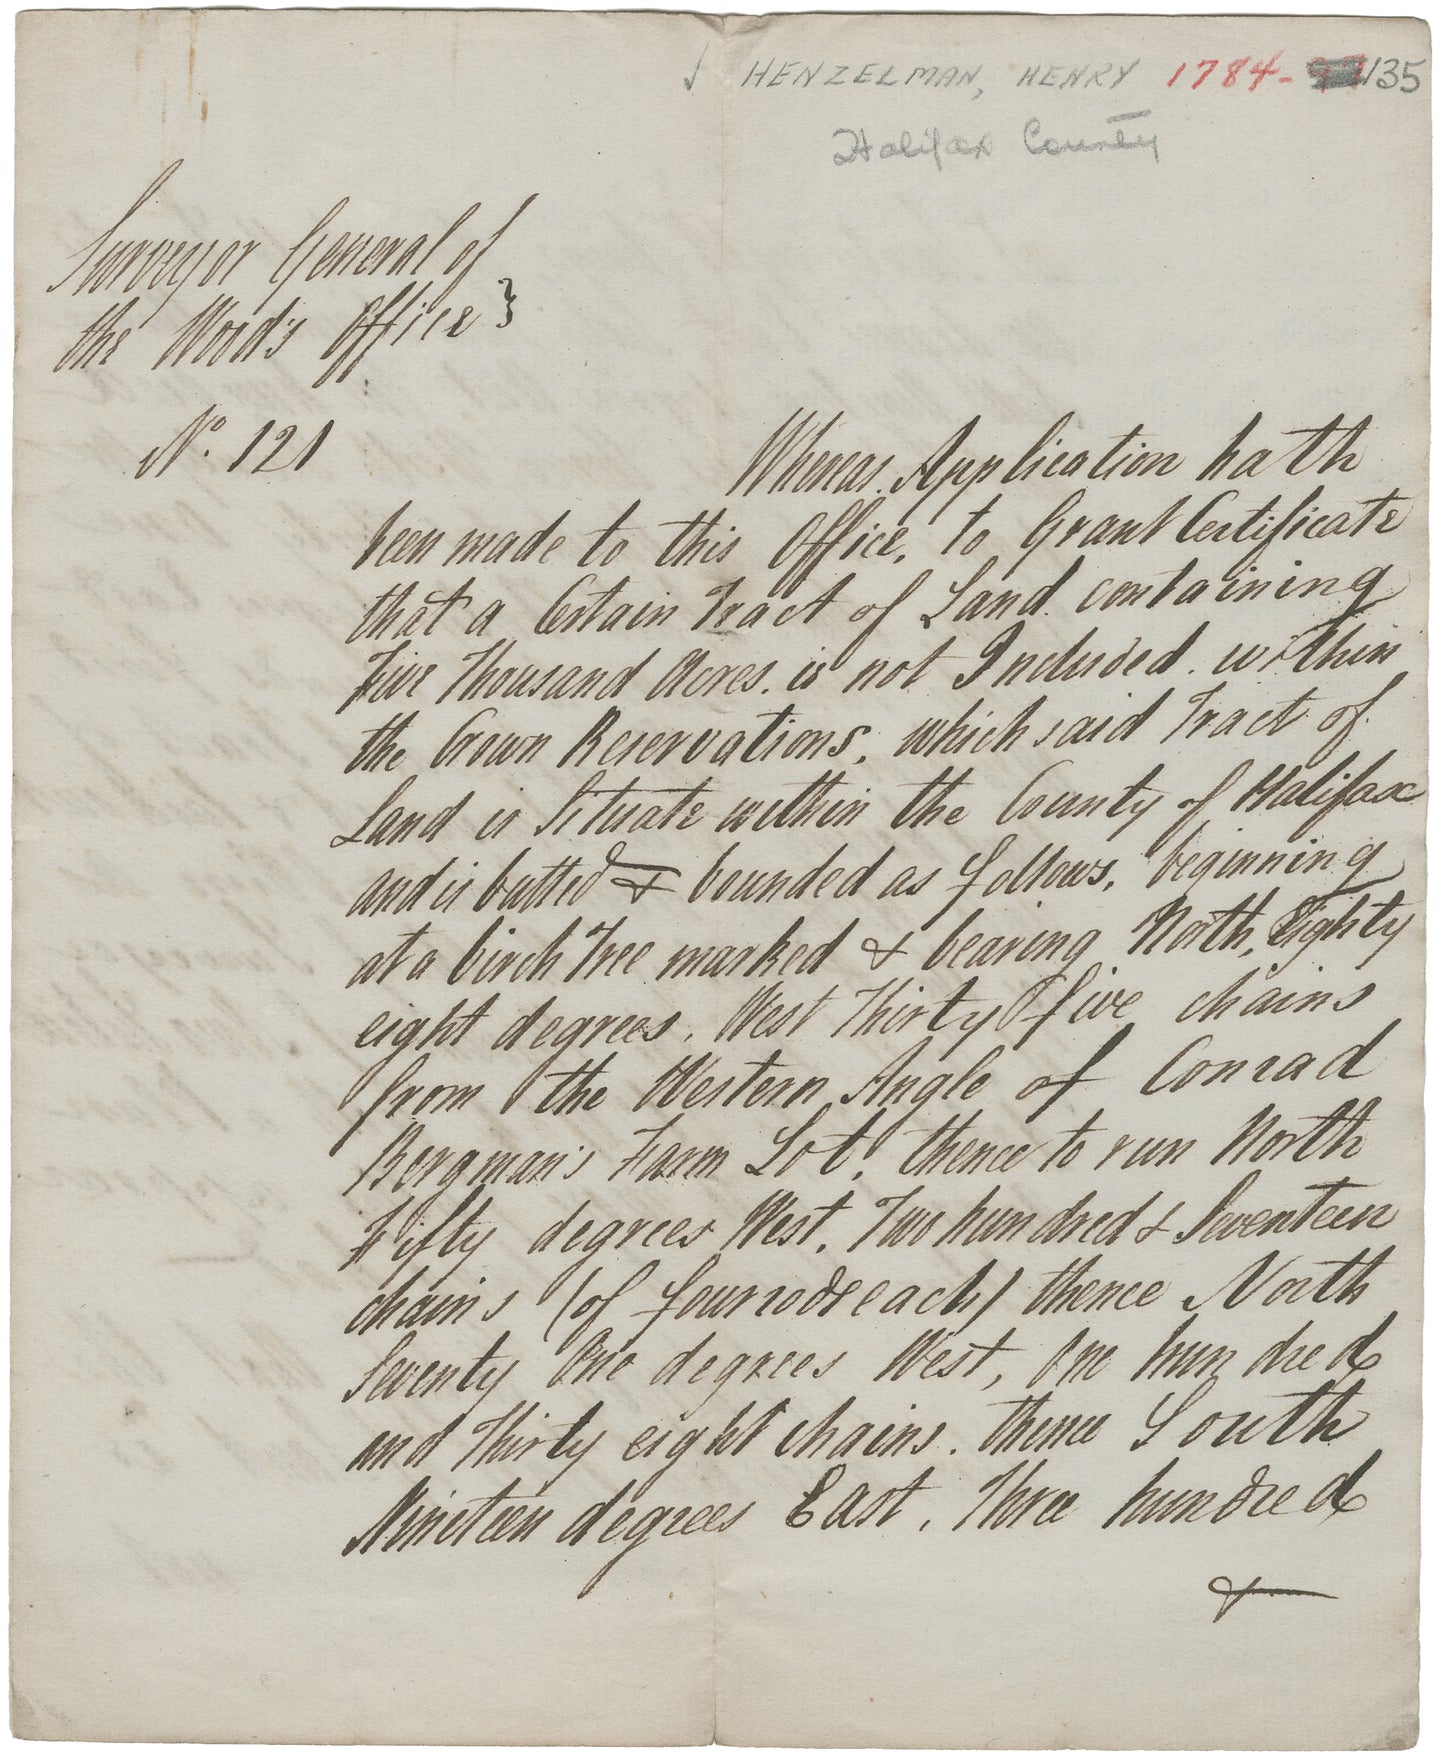 √ HENZELMAN, HENRY 1784- 135
Halifax County
Surveyor General of
the Wood's Office }
No. 121
Whereas Application hath
been made to this Office, to Grant Certificate
that a Certain Tract of Land containing
Five Thousand Acres. is not Included within
the Crown Reservations, which said Tract of
Land is Situate within the County of Halifax
and is butted & bounded as follows, beginning
at a birch Tree marked & bearing North, Eighty
eight degrees, West Thirty five chains
from the Western Angle of Conrad
Bergman's Farm Lot, thence to run North
Fifty degrees West, Two hundred & Seventeen
chains (of four rods each) thence North
Seventy One degrees West, One hundred
and Thirty eight chains. thence South
Nineteen degrees East, Three hundred
&